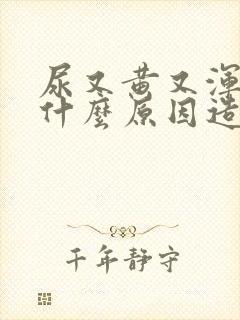 尿又黄又渾
什麼原因造
千年静守